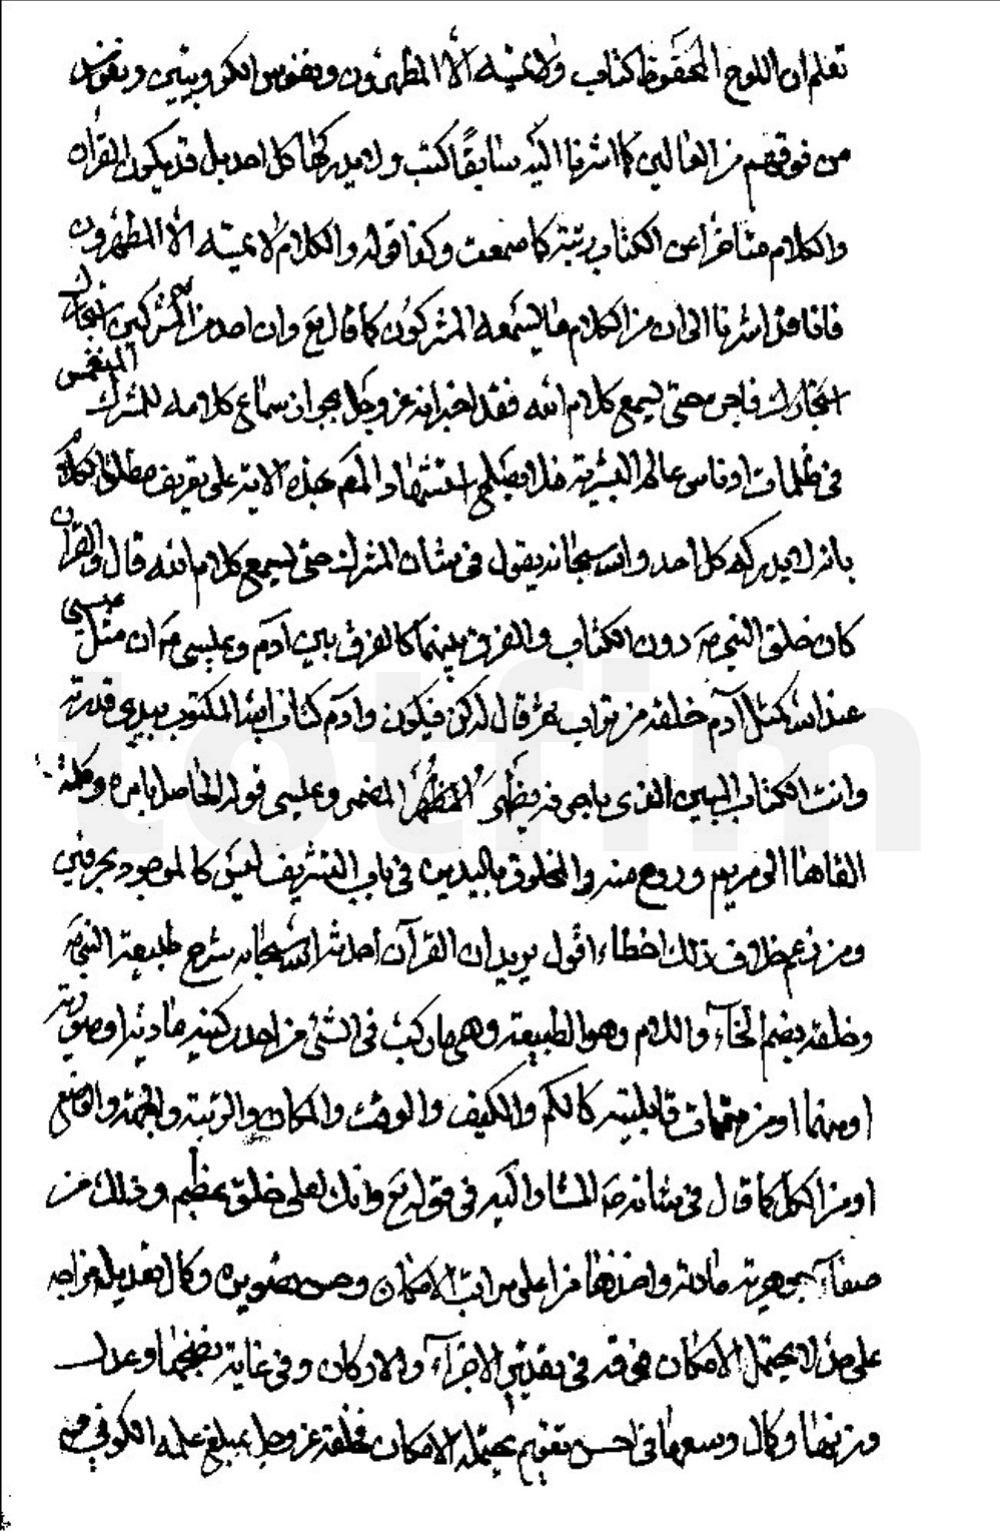 تعلم ان اللوح المحفوظ كتاب ولا يمسه الا المطهرون ونفوس الكروبيين ونفوس
من فوقهم من العالين كما اشرنا اليه سابقا كتب ولا يدركها كل احد بل قد يكون القرآن
والكلام متأخرا عن الكتاب رتبة كما سمعت وكذا قوله والكلام لا يمسه الا المطهرون
فانا قد اشرنا الى ان من الكلام ما يسمعه المشركون كما قال تع وان احد من المشركين استجارك
استجارك فاجره حتى يسمع كلام الله فقد اخبر انه عز وجل يجوز ان سماع كلامه للمشرك المنغمس
في ظلمات ادناس عالم البشرية فلا يصلح استشهاد المص بهذه الاية على تعريف مطلق الكلام
بانه لا يدركه كل احد والله سبحانه يقول في شان المشرك حتى يسمع كلام الله قال والقرآن
كان خلق النبي ص دون الكتاب والفرق بينهما كالفرق بين ادم وعيسى ع ان مثل عيسى
عند الله كمثل آدم خلقه من تراب ثم قال له كن فيكون وادم كتاب الله المكتوب بيدي قدرته
وانت الكتاب المبين الذي باحرفه يظهر المضمر وعيسى قوله الحاصل بامره وكلمته
القاها الى مريم وروح منه والمخلوق باليدين في باب التشريف ليس كالموجود بحرفين
ومن زعم خلاف ذلك اخطاء اقول يريد ان القرآن احدثه الله سبحانه شرح طبيعة النبي ص
وخلقه بضم الخآء واللام وهو الطبيعة وهي ما ركب في الشئ من احد ركنيه مادته او صورته
او منهما او من متممات قابليته كالكم والكيف والوقت والمكان والرتبة والجهة والوضع
او من الكل كما قال في شانه ص المشار اليه في قوله تع وانك لعلى خلق عظيم وذلك من
صفآء جوهرية مادته واخذها من اعلى مراتب الامكان وحسن تصويره وكمال تعديل مزاجه
على حد لا يحتمل الامكان فوقه في تقدير الاجزآء والاركان وفي غاية نضجها وعدل
وزنها وكمال وسعها في احسن تقويم يحتمله الامكان فخلقه عز وجل بمبلغ علمه الكوني فيه